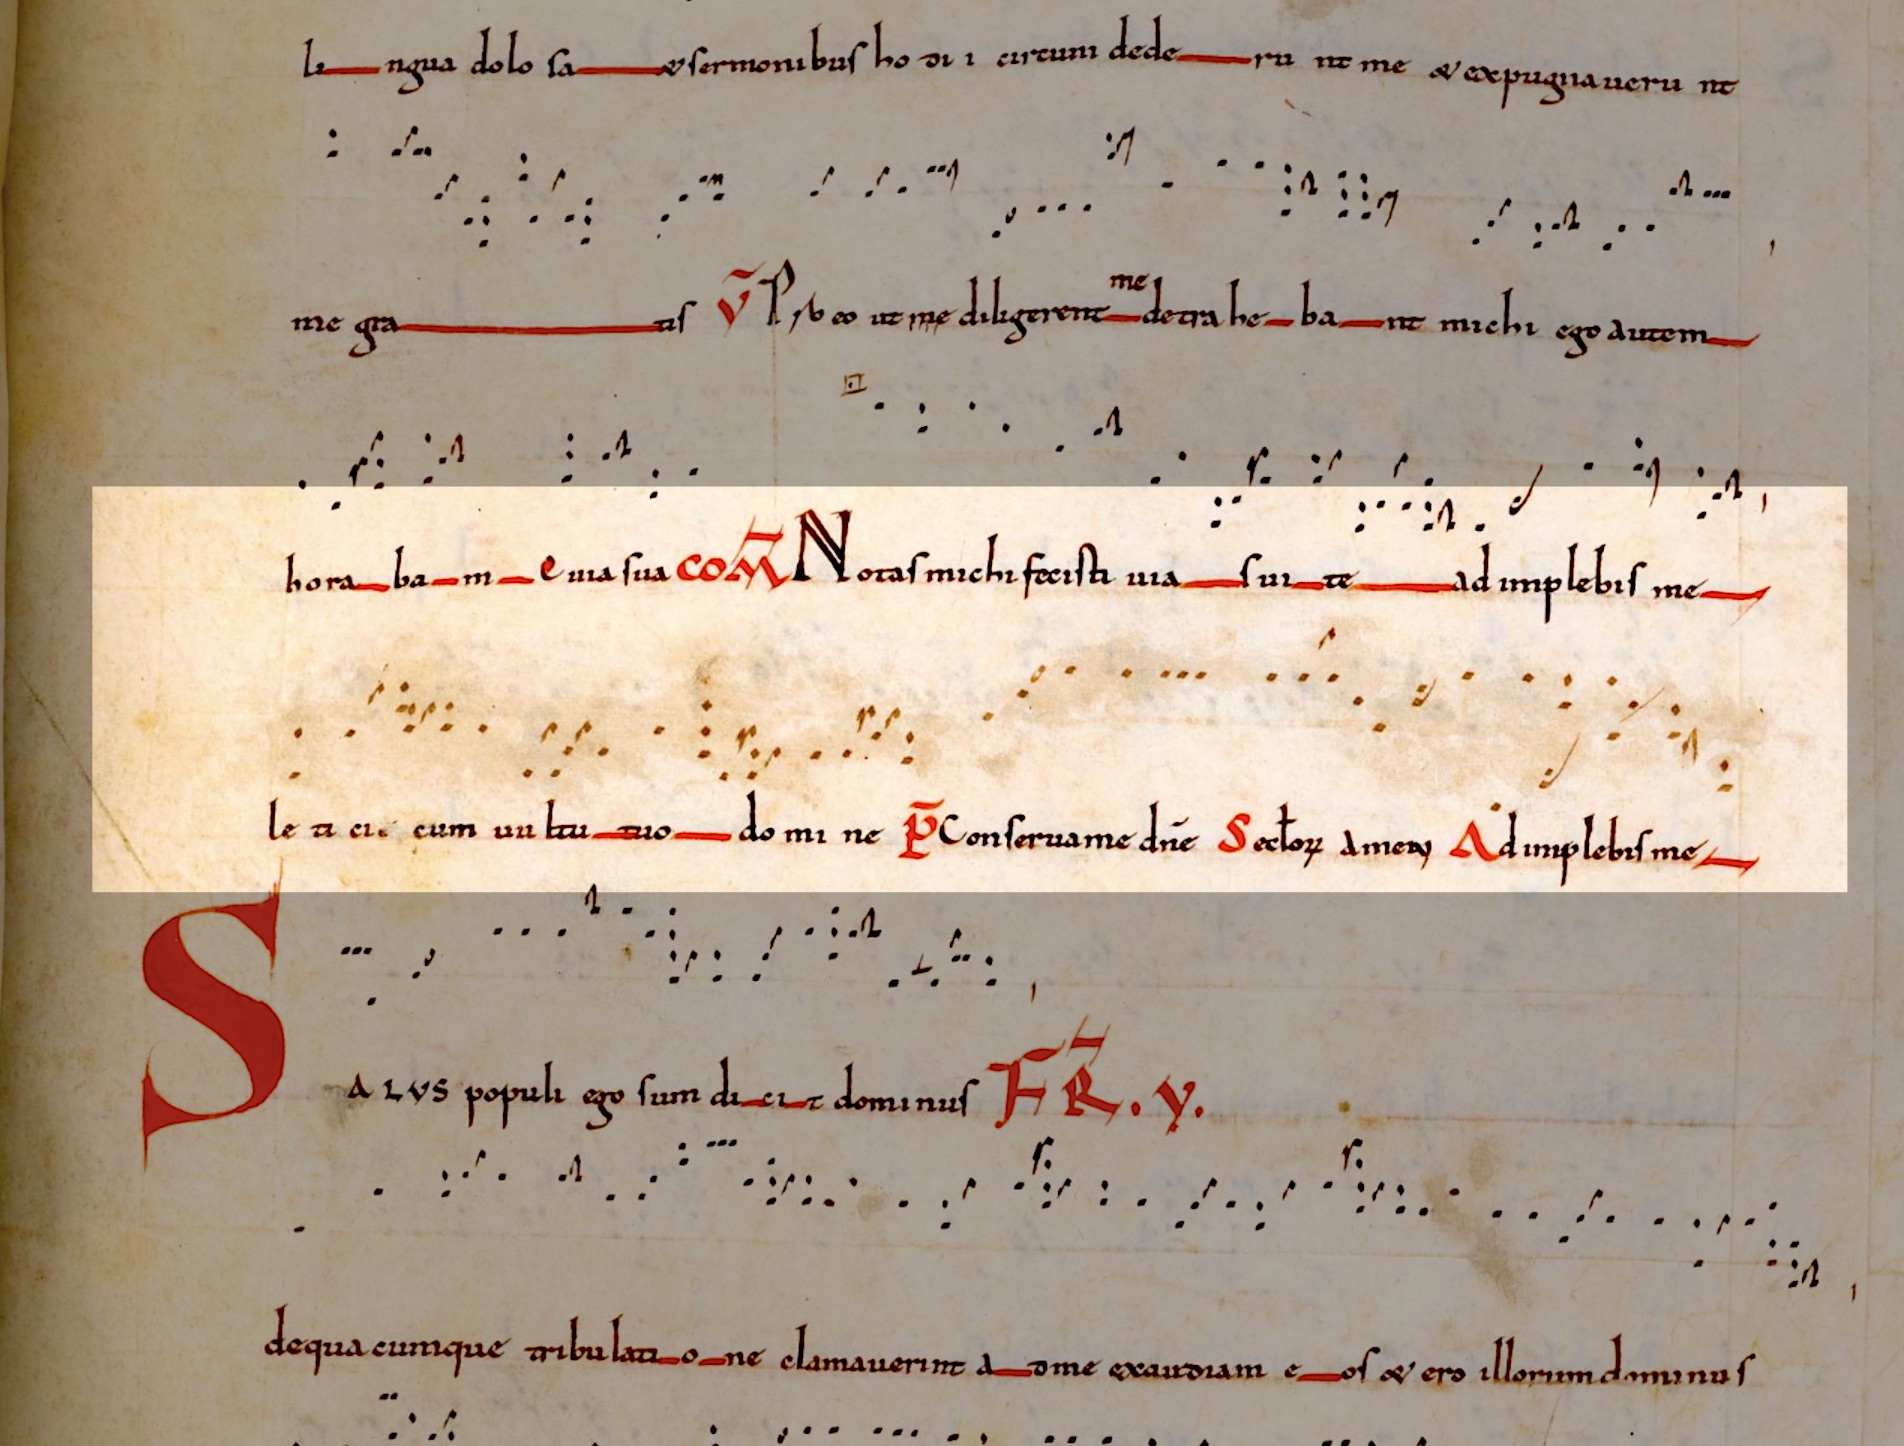 li ngua dolo sa &sermonibus ho di i circum dede ru nt me & expugnaueru nt
me gra tis v̄ P, eo ut me diligerent me detra he ba nt michi ego autem
hora ba m e uia sua COM̄ Notas michi fecisti uia s ui te ad implebis me
le ti ci cum uu ltu tuo do mi ne P̄ Conserua me dn̄e Secl̄oꝝ amen Ad implebis me
SALVS populi ego sum di ci t dominus FR̄. V.
dequacumque tribulati o ne clamauerint a dme exaudiam e os & ero illorum dominus